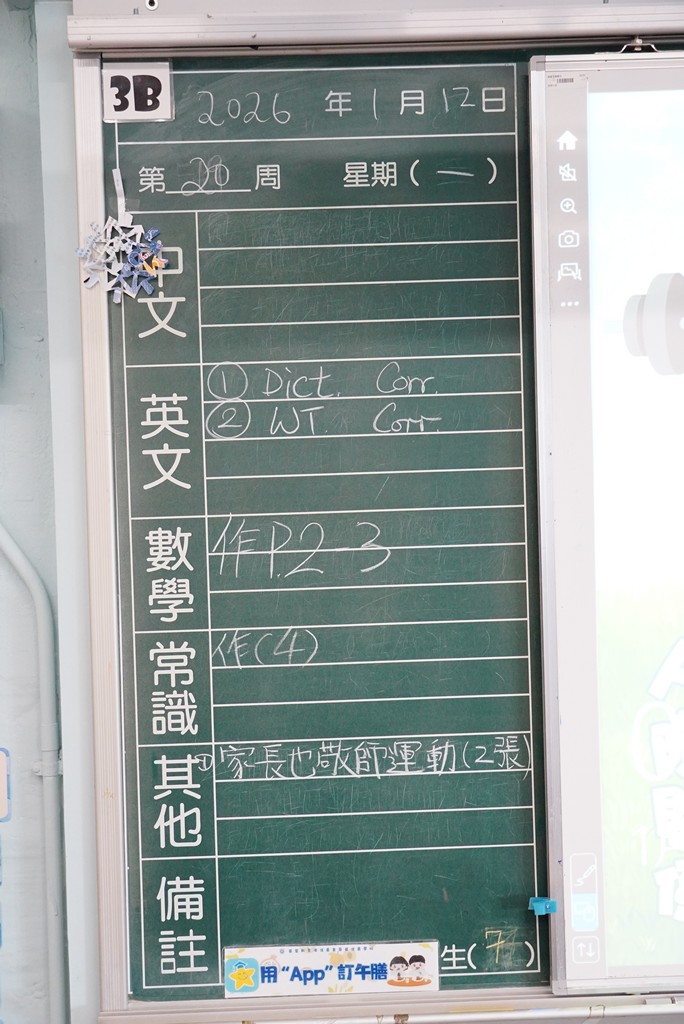 3B
2026 年 1 月 12 日
第 20 周 星期 ( 一 )
中文
英文
① Dict. Corr.
② WT. Corr.
數學
作 P.2-3
常識
作(4)
其他
① 家長也敬師運動(2張)
備註
用 “App” 訂午膳
生( 7 )